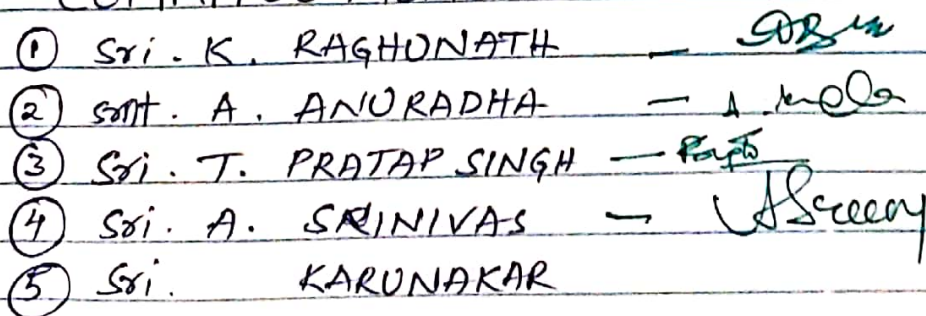 ① Sri. K. RAGHUNATH —
② smt. A. ANURADHA — A.
③ Sri. T. PRATAP SINGH —
④ Sri. A. SRINIVAS —
⑤ Sri. KARUNAKAR